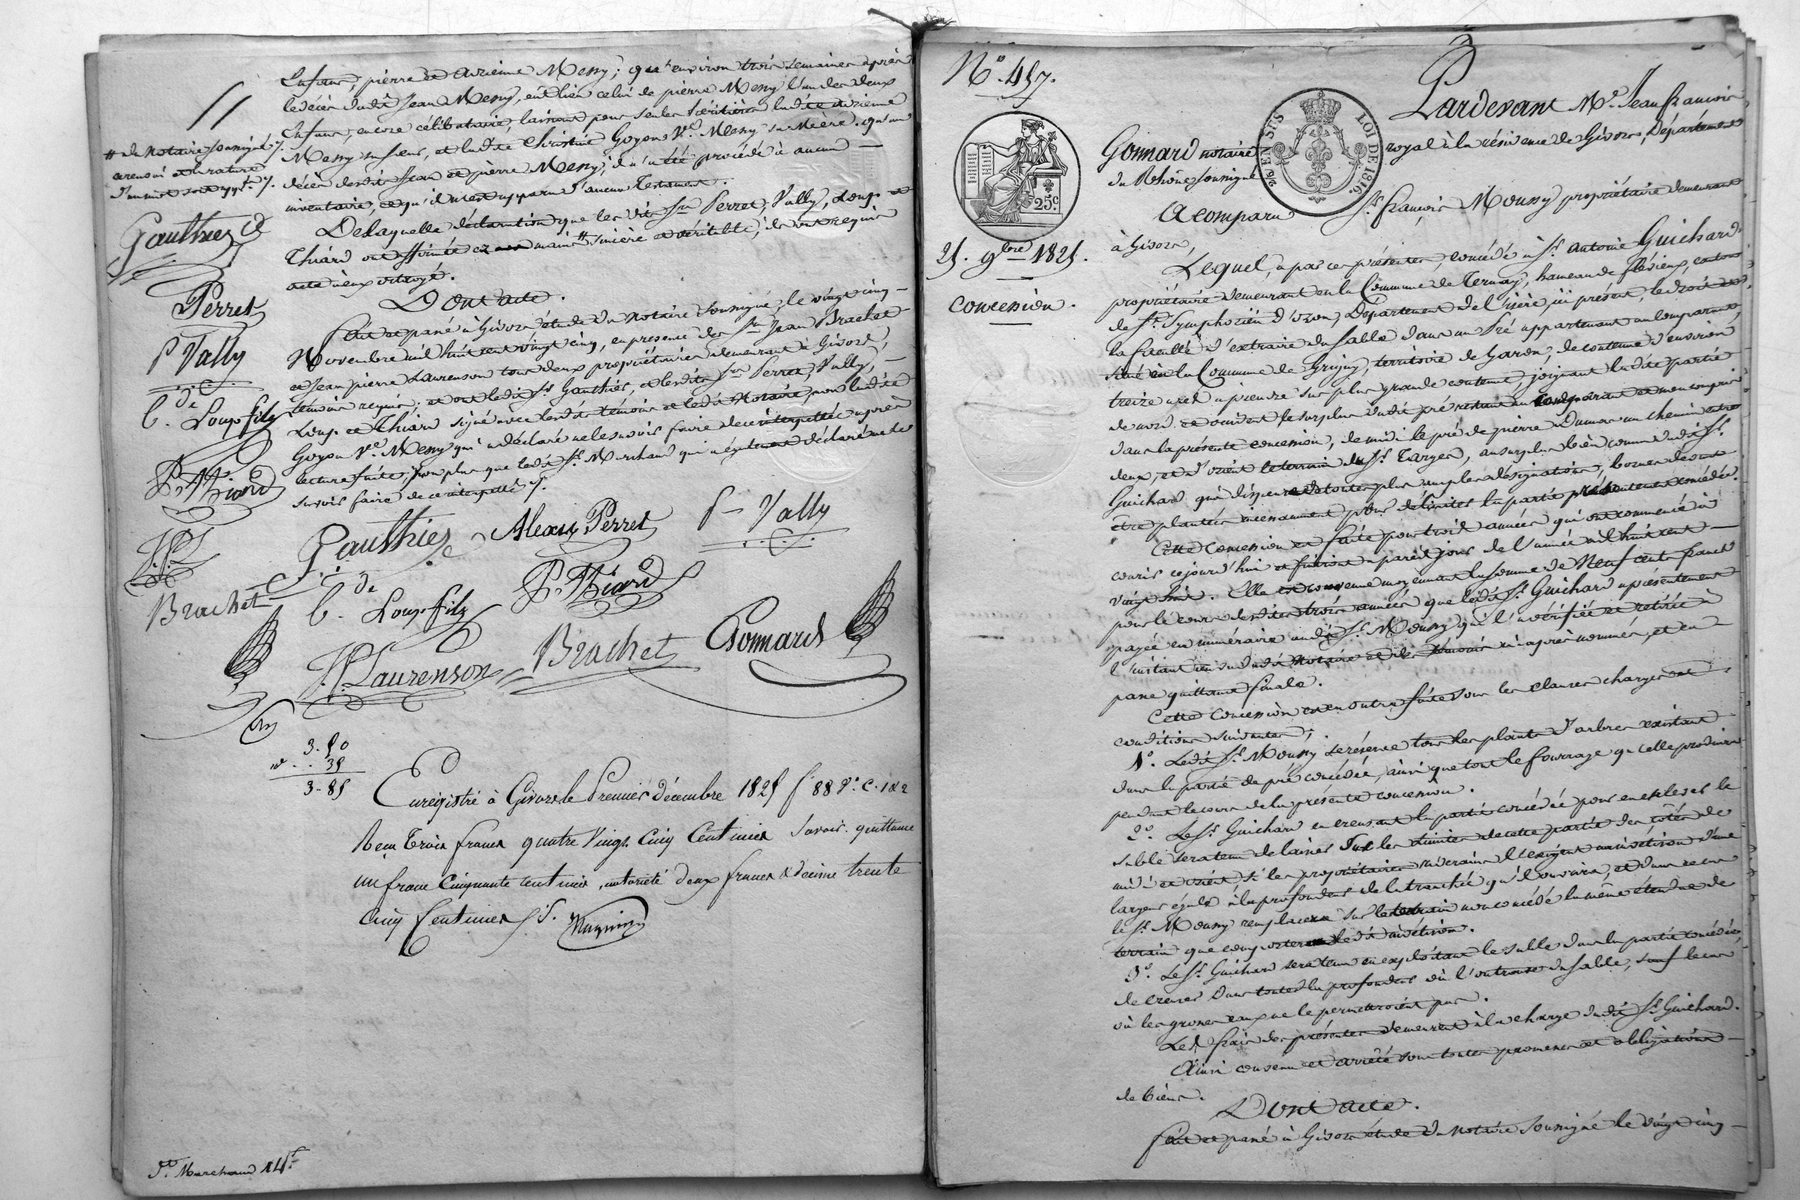 Enfans, pierre et Antoinne Messy; que environ trois semaines après
le décès dudit Jean Messy, eut lieu celui de pierre Messy l'un des deux
Enfans, encore célibataire, laissant pour seules héritières ladite
Messy sa sœur, et ladite Goyon Ve Messy sa Mère. qu'au
décès desdits Jean et pierre Messy, il n'a été procédé à aucun
inventaire, et qu'il n'est apparu d'aucun Testament.
De laquelle déclaration que les dits Srs Perret, Vally, Loup et
Thiard ont affirmée en main sincère et véritable, ils ont requis
acte à eux octroyé.
Dont acte.
Fait et passé à Givors étude du Notaire soussigné, le vingt cinq
Novembre mil huit cent vingt cinq, en présence des Srs Jean Brachet
et Jean pierre Laurenson tous deux propriétaires demeurant à Givors,
témoins requis; et ont ledit Sr Gauthier, et lesdits Srs Perret, Vally,
Loup et Thiard signé avec lesdits témoins et ledit Notaire, non ladite
Goyon Ve Messy qui a déclaré ne le savoir faire de ce interpellée après
lecture faite, non plus que ledit Sr Marchand qui a également déclaré ne le
savoir faire de ce interpellé
# du Notaire soussigné
Gauthier
Perret
P Vally
C. de Loup filz
P. Thiard
J.P.L
Brachet
Gauthier
Alexis Perret
P Vally
C. de Loup filz
P. Thiard
J.P Laurenson
Brachet
Gonnard
3. 50
. 35
3. 85
Enregistré à Givors le Premier décembre 1825 f 88 Vo C. 1 & 2
Reçu Trois francs quatre Vingt Cinq Centimes Savoir quittance
un franc Cinquante centimes, notoriété deux francs & décime trente
Cinq Centimes
Marchand
No. 457.
25 c
EN SUS
LOI DE 1816.
25. 9bre 1825.
Concession.
Pardevant Me. Jean françois
Gonnard notaire royal à la résidence de Givors, Département
du Rhône, soussigné
A comparu Sr. françois Moussy propriétaire demeurant
à Givors,
Lequel, a par ces présentes, concédé à Sr. Antoine Guichard
propriétaire demeurant en la Commune de Ternay, hameau de flévieux, canton
de St. Symphorien d'ozon, Département de l'Isère, ici présent, le droit et
la faculté d'extraire du sable dans un Pré appartenant au comparant,
situé en la Commune de Grigny, territoire de Garon, de contenue d'environ
treize ares à prendre sur plus grande contenue, joignant ladite partie
de nord et occident le surplus dudit pré restant au comparant et non compris
dans la présente concession, de midi le pré de pierre Dumas un chemin entre
deux, et d'orient le terrain du Sr. Targes, au surplus bien connu dudit Sr.
Guichard qui dispense de toute plus ample désignation; bornes devant
être plantées incessamment pour délimiter la partie présentement concédée.
Cette concession est faite pour trois années qui ont commencé à
courir ce jourd'hui et finiront à pareil jour de l'année mil huit cent
vingt huit. Elle est convenue moyennant la somme de Neuf cent francs
pour le cours desdites trois années que ledit Sr. Guichard a présentement
payée en numéraire audit Sr. Moussy qui l'a vérifiée et retirée à
l'instant en vue dudit Notaire et des témoins ci après nommés, et en
passe quittance finale.
Cette concession est en outre faite sous les clauses charges et
conditions suivantes;
1o. Ledit Sr. Moussy se réserve tous les plants d'arbres existant
dans la partie de pré concédée, ainsi que tout le fourrage qu'elle produira
pendant le cours de la présente concession.
2o. Le Sr. Guichard en creusant la partie concédée pour en enlever le
sable sera tenu de laisser sur les limites de cette partie des côtés de
midi et orient, si les propriétaires riverains l'exigent une d'une
largeur égale à la profondeur de la tranchée qu'il ouvrira, et dans ce cas
le Sr. Moussy remplacera sur le terrain non concédé la même étendue de
terrain que comportera ledit
3o. Le Sr. Guichard sera tenu en exploitant le sable dans la partie concédée,
de creuser dans toute la profondeur où l'on trouve du sable, sauf le cas
où les grosses eaux ne le permettroient pas.
Les frais des présentes demeurent à la charge dudit Sr. Guichard.
Ainsi convenu et arrêté sous toutes promesses et obligations
de biens.
Dont acte.
Fait et passé à Givors étude du Notaire soussigné le vingt cinq